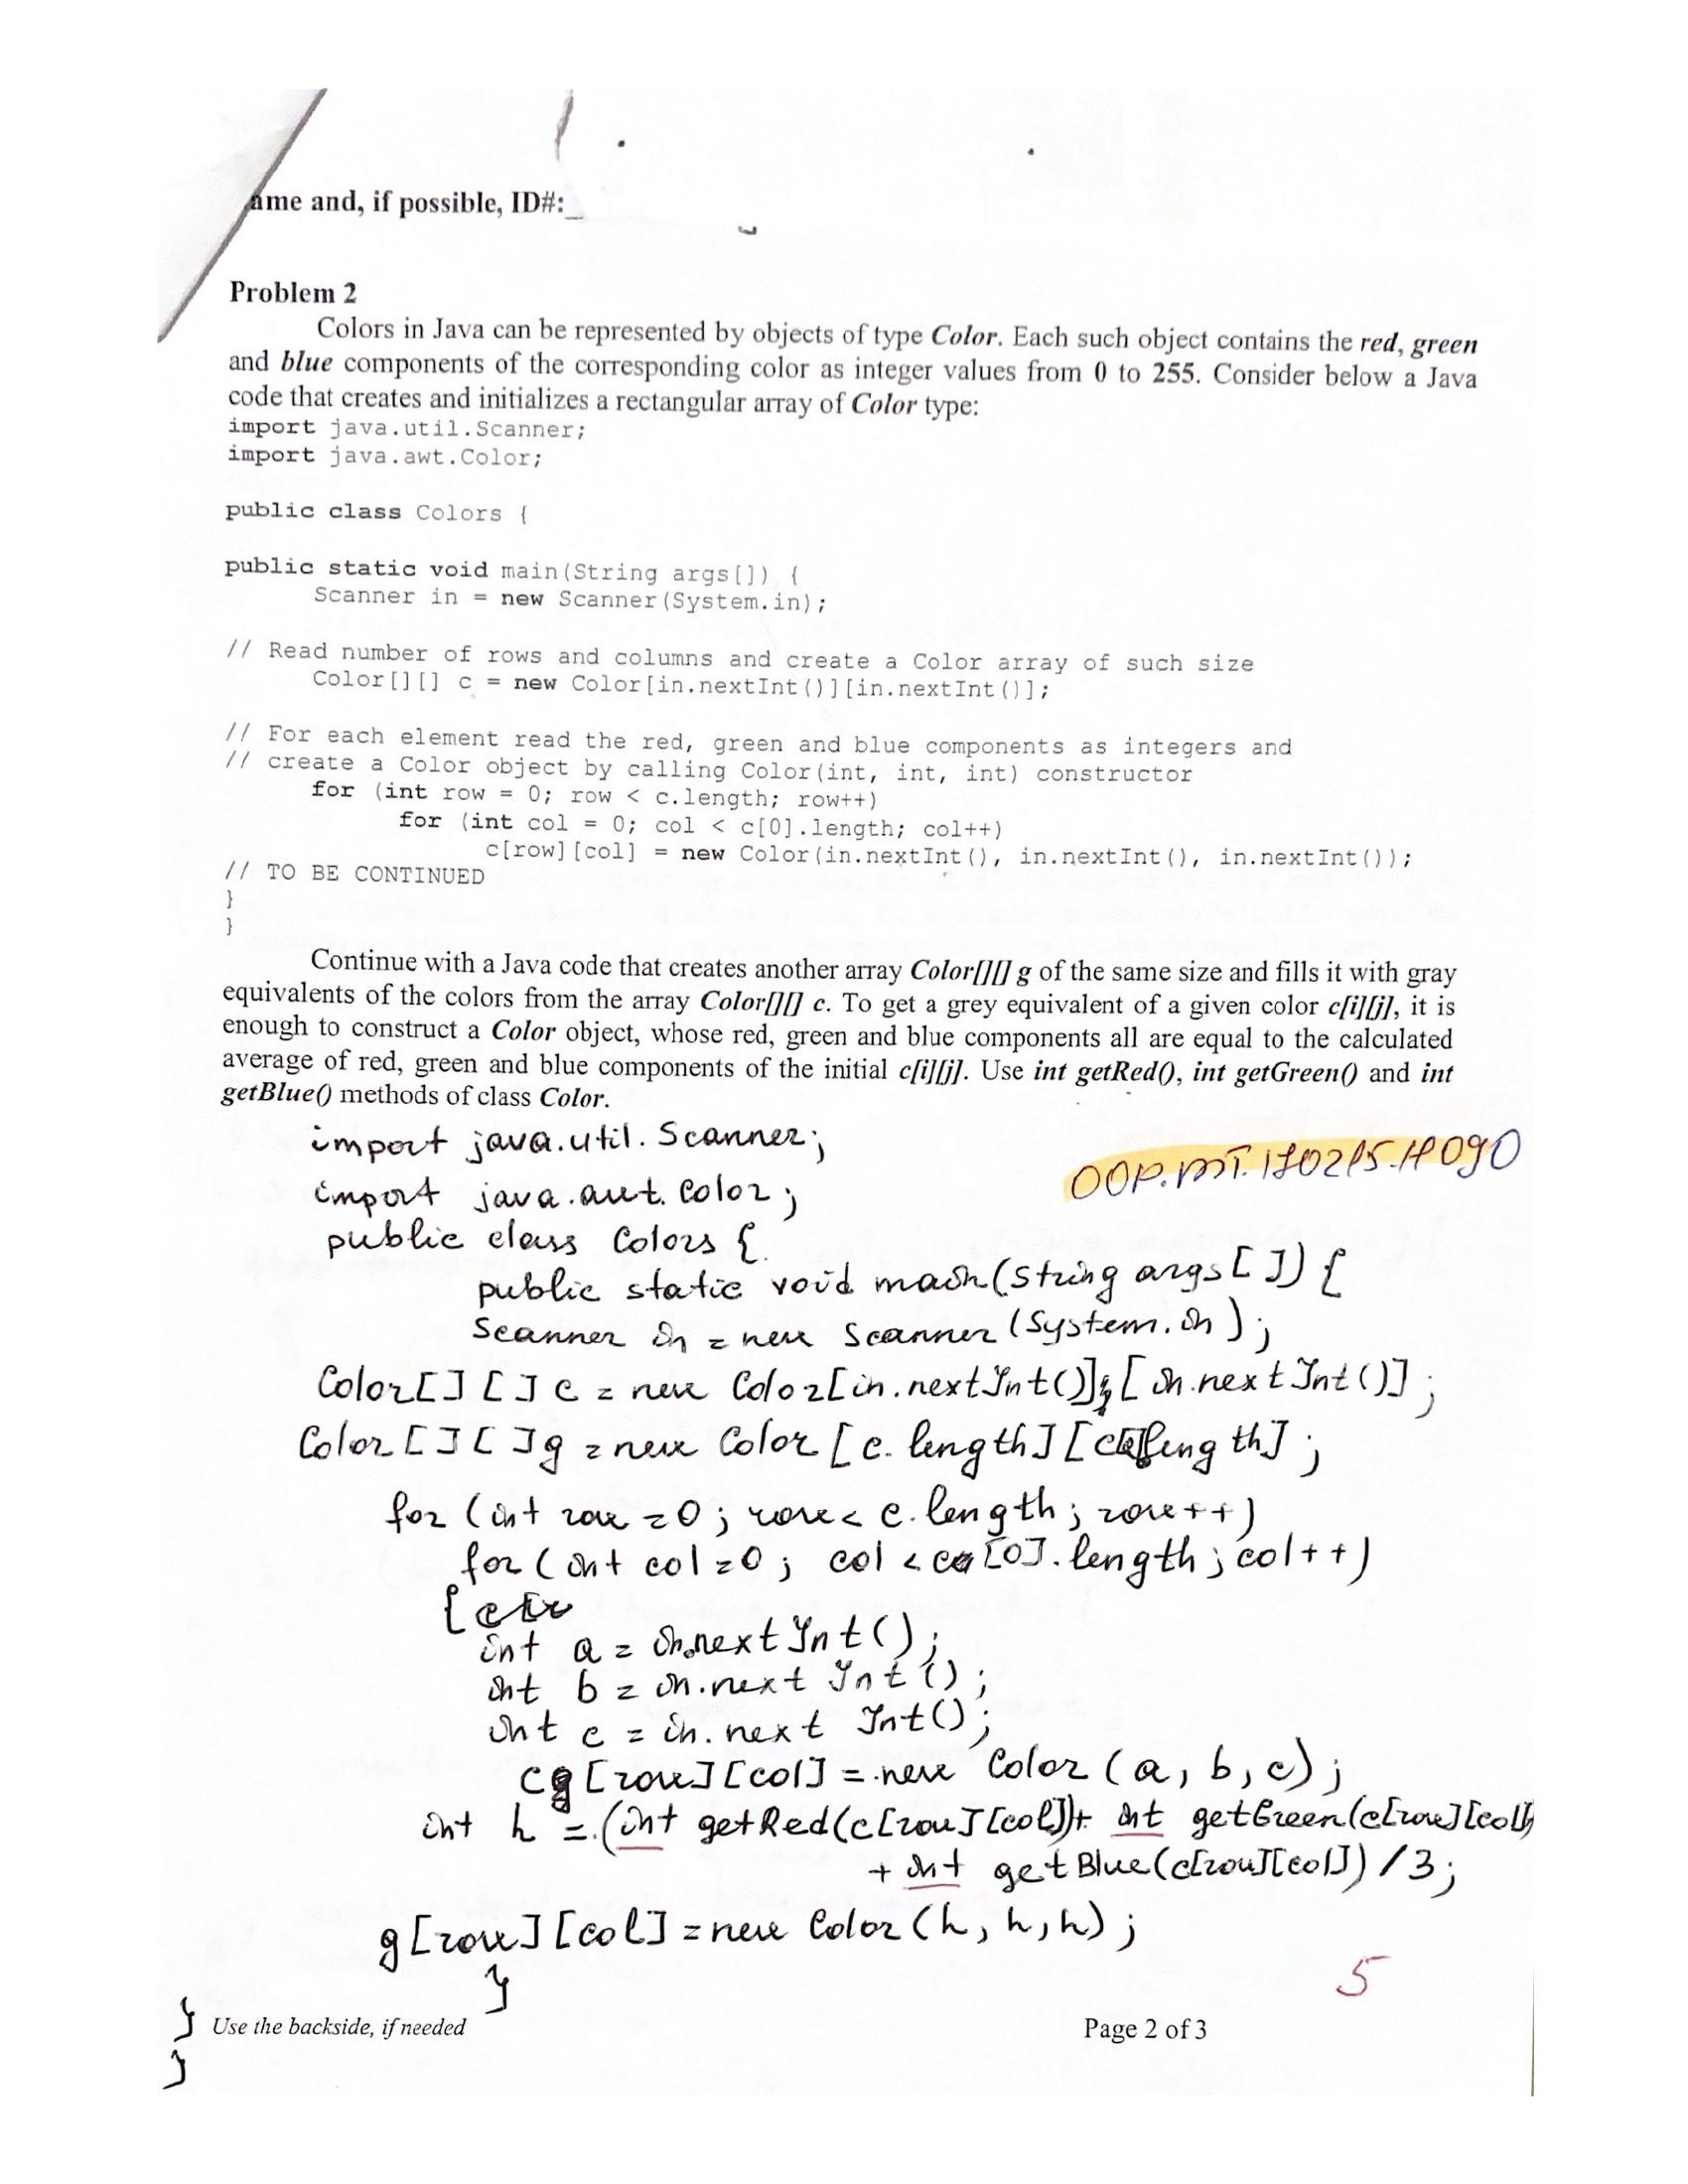 ame and, if possible, ID#:_
Problem 2
Colors in Java can be represented by objects of type Color. Each such object contains the red, green
and blue components of the corresponding color as integer values from 0 to 255. Consider below a Java
code that creates and initializes a rectangular array of Color type:
import java.util.Scanner;
import java.awt.Color;
public class Colors {
public static void main(String args[]) {
Scanner in = new Scanner(System.in);
// Read number of rows and columns and create a Color array of such size
Color[][] c = new Color[in.nextInt()][in.nextInt()];
// For each element read the red, green and blue components as integers and
// create a Color object by calling Color(int, int, int) constructor
for (int row = 0; row < c.length; row++)
for (int col = 0; col < c[0].length; col++)
c[row][col] = new Color(in.nextInt(), in.nextInt(), in.nextInt());
// TO BE CONTINUED
}
}
Continue with a Java code that creates another array Color[][] g of the same size and fills it with gray
equivalents of the colors from the array Color[][] c. To get a grey equivalent of a given color c[i][j], it is
enough to construct a Color object, whose red, green and blue components all are equal to the calculated
average of red, green and blue components of the initial c[i][j]. Use int getRed(), int getGreen() and int
getBlue() methods of class Color.
import java.util.Scanner;
import java.awt.Color;
public class Colors {
public static void main(String args[]) {
Scanner in = new Scanner(System.in);
Color[][] c = new Color[in.nextInt()][in.nextInt()];
Color[][]g = new Color[c.length][c[0]length];
for (int row = 0; row < c.length; row++)
for (int col = 0; col < c[0].length; col++)
{
int a = in.nextInt();
int b = in.nextInt();
int c = in.nextInt();
c[row][col] = new Color(a, b, c);
int h = (int getRed(c[row][col])+ int getGreen(c[row][col])
+ int getBlue(c[row][col])/3;
g[row][col] = new Color(h, h, h);
}
5
} Use the backside, if needed Page 2 of 3
}